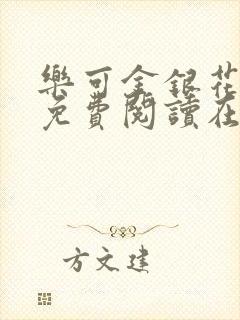 樂可金銀花
免費閱讀在
方文建